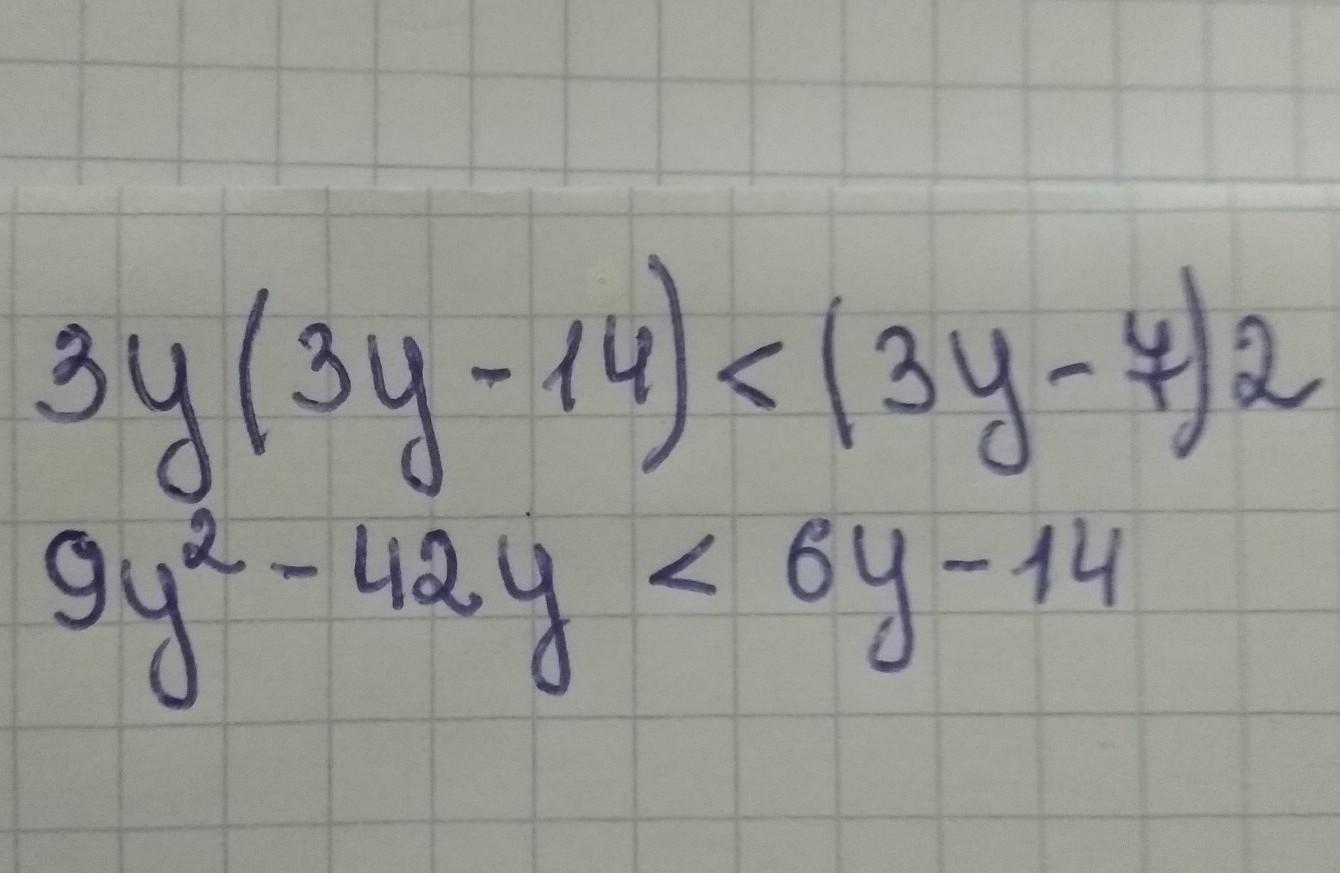 3y(3y-14)<(3y-7)2
9y²-42y < 6y-14